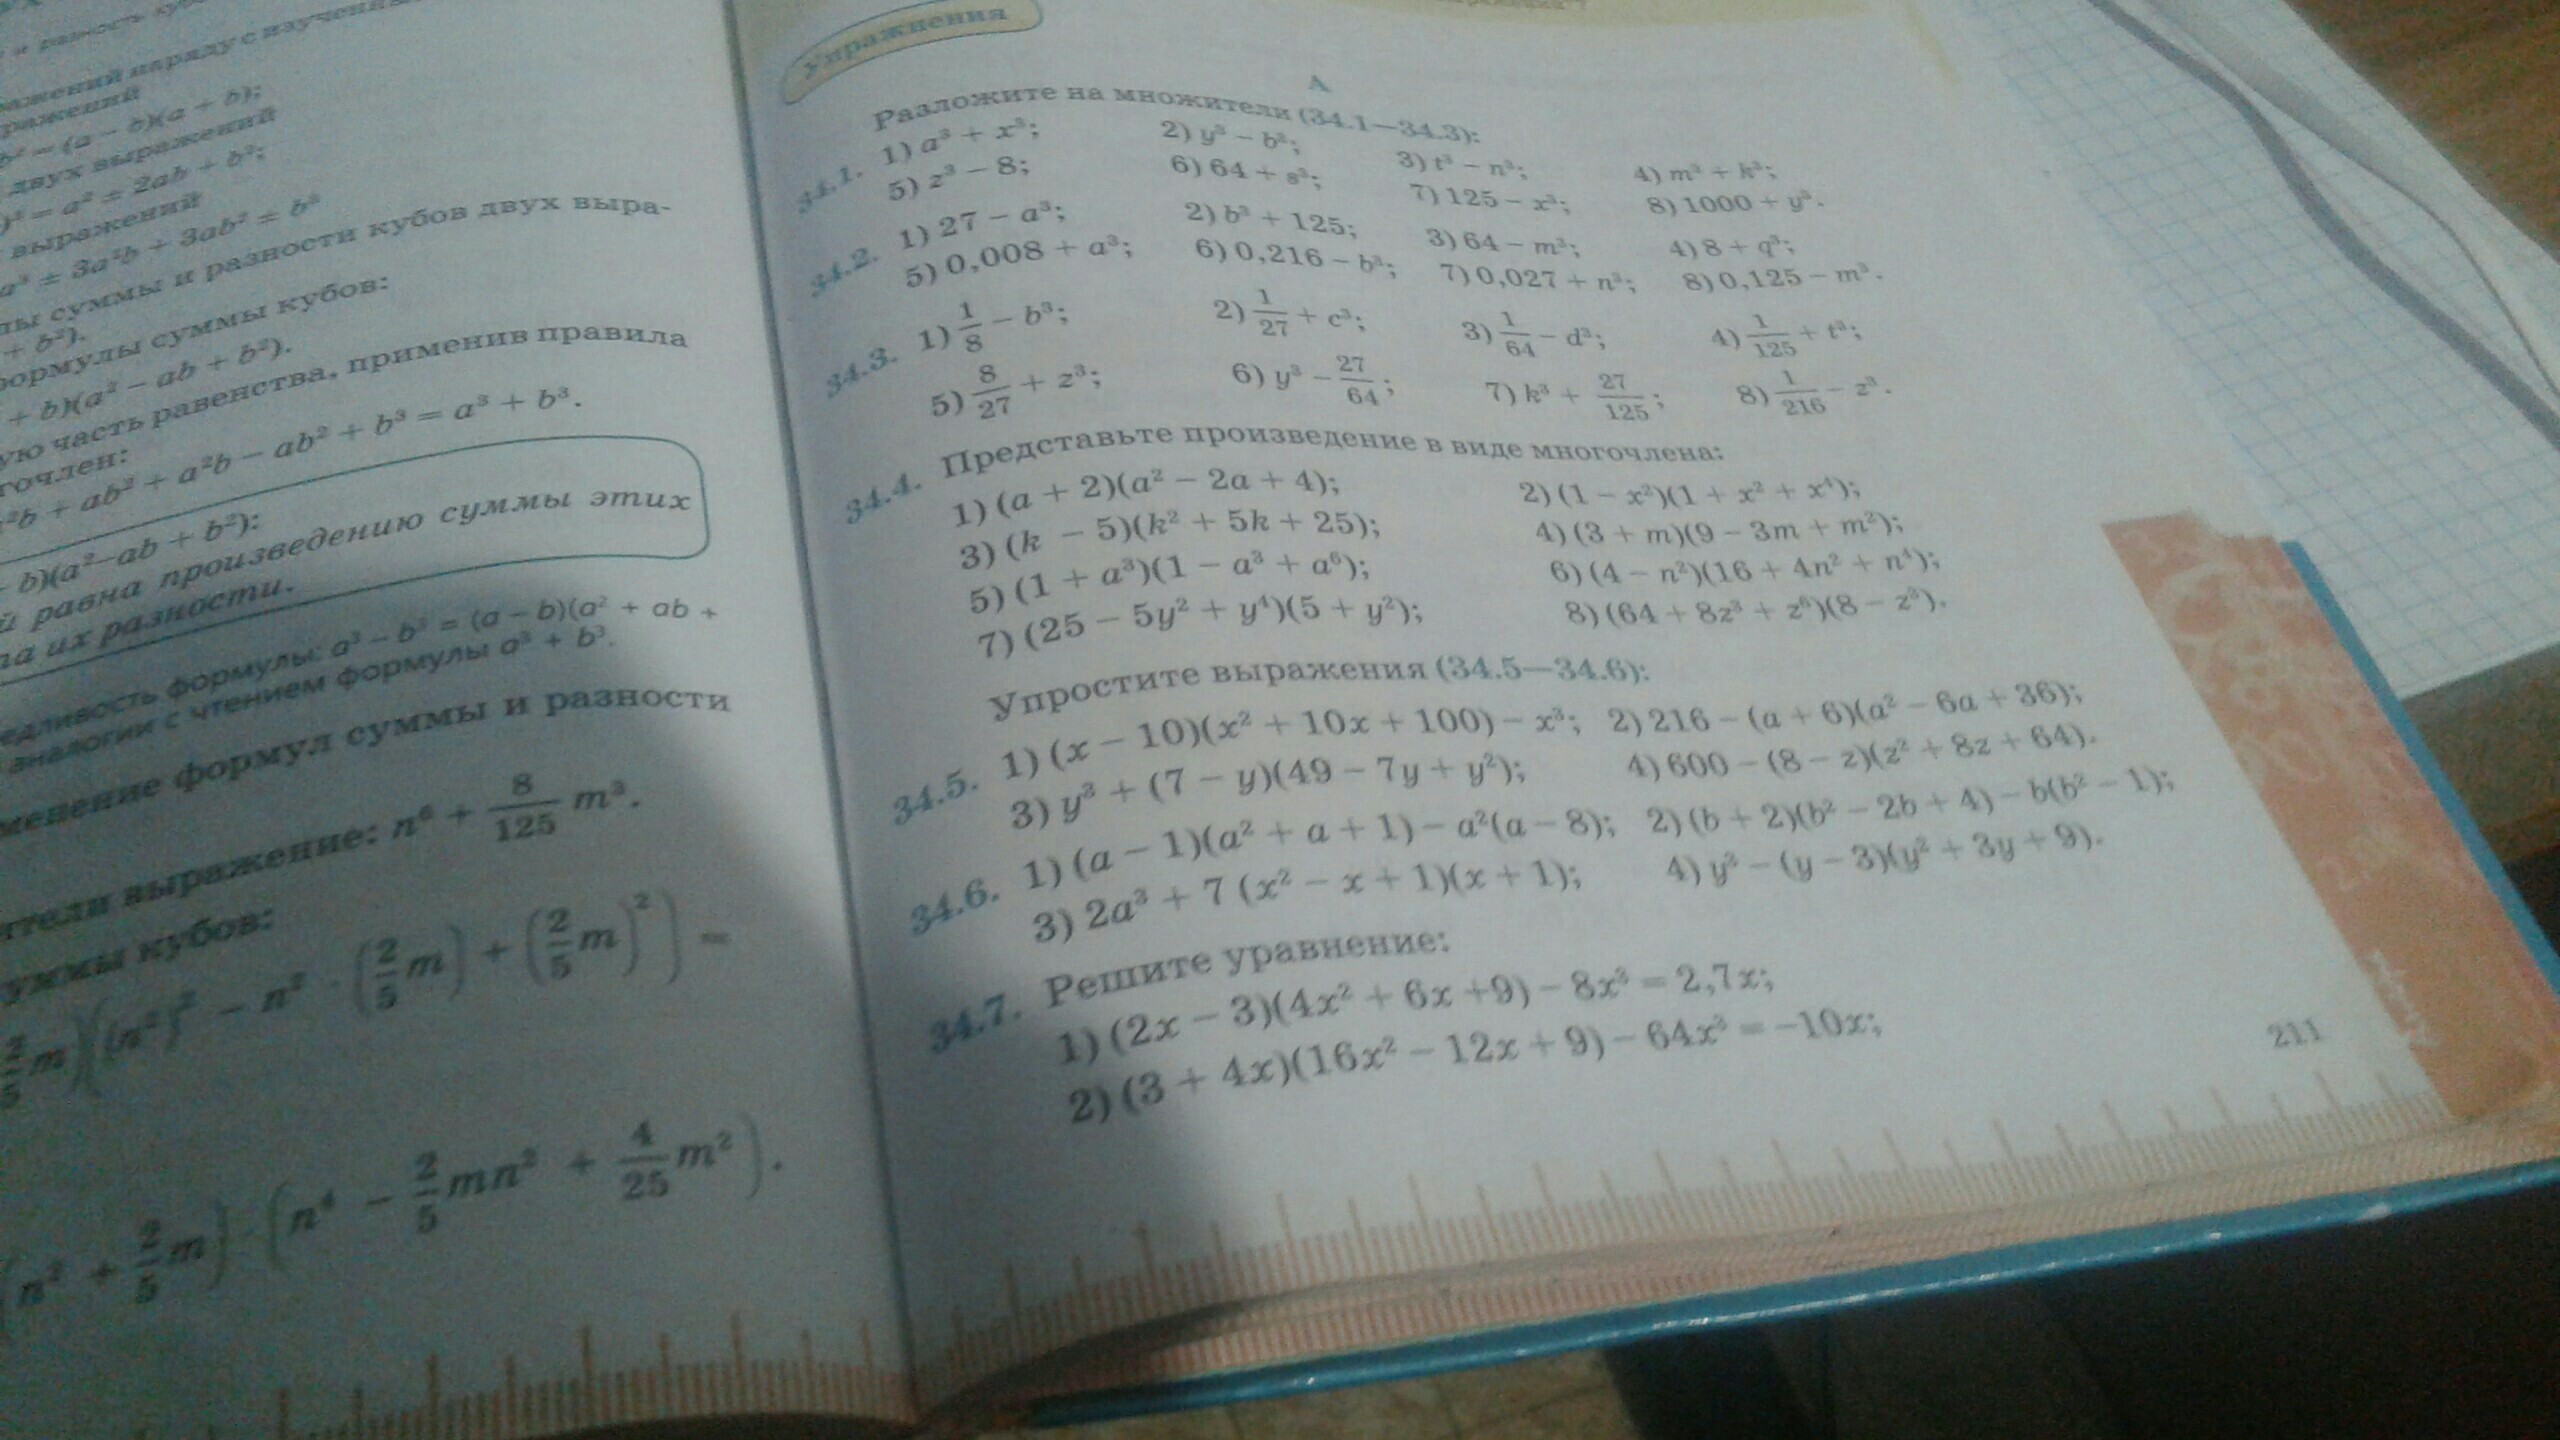 ражений наряду с изученны
ражений
b² = (a − b)(a + b);
двух выражений
)² = a² ± 2ab + b²;
выражений
a³ ± 3a²b + 3ab² ± b³
лы суммы и разности кубов двух выра-
+ b²).
формулы суммы кубов:
+ b)(a² − ab + b²).
ую часть равенства, применив правила
гочлен:
²b + ab² + a²b − ab² + b³ = a³ + b³.
− b)(a²−ab + b²):
й равна произведению суммы этих
та их разности.
едливость формулы: a³ − b³ = (a − b)(a² + ab +
аналогии с чтением формулы a³ + b³.
менение формул суммы и разности
ители выражение: n⁶ + 8/125 m³.
уммы кубов:
2/5 m)((n²)² − n² · (2/5 m) + (2/5 m)²) =
(n² + 2/5 m) · (n⁴ − 2/5 mn² + 4/25 m²).
Упражнения
А
Разложите на множители (34.1—34.3):
34.1. 1) a³ + x³; 2) y³ − b³; 3) t³ − n³; 4) m³ + k³;
5) z³ − 8; 6) 64 + s³; 7) 125 − x³; 8) 1000 + y³.
34.2. 1) 27 − a³; 2) b³ + 125; 3) 64 − m³; 4) 8 + q³;
5) 0,008 + a³; 6) 0,216 − b³; 7) 0,027 + n³; 8) 0,125 − m³.
34.3. 1) 1/8 − b³; 2) 1/27 + c³; 3) 1/64 − d³; 4) 1/125 + t³;
5) 8/27 + z³; 6) y³ − 27/64; 7) k³ + 27/125; 8) 1/216 − z³.
34.4. Представьте произведение в виде многочлена:
1) (a + 2)(a² − 2a + 4); 2) (1 − x²)(1 + x² + x⁴);
3) (k − 5)(k² + 5k + 25); 4) (3 + m)(9 − 3m + m²);
5) (1 + a³)(1 − a³ + a⁶); 6) (4 − n²)(16 + 4n² + n⁴);
7) (25 − 5y² + y⁴)(5 + y²); 8) (64 + 8z³ + z⁶)(8 − z³).
Упростите выражения (34.5—34.6):
34.5. 1) (x − 10)(x² + 10x + 100) − x³; 2) 216 − (a + 6)(a² − 6a + 36);
3) y³ + (7 − y)(49 − 7y + y²); 4) 600 − (8 − z)(z² + 8z + 64).
34.6. 1) (a − 1)(a² + a + 1) − a²(a − 8); 2) (b + 2)(b² − 2b + 4) − b(b² − 1);
3) 2a³ + 7 (x² − x + 1)(x + 1); 4) y³ − (y − 3)(y² + 3y + 9).
34.7. Решите уравнение:
1) (2x − 3)(4x² + 6x +9) − 8x³ = 2,7x;
2) (3 + 4x)(16x² − 12x + 9) − 64x³ = −10x;
211